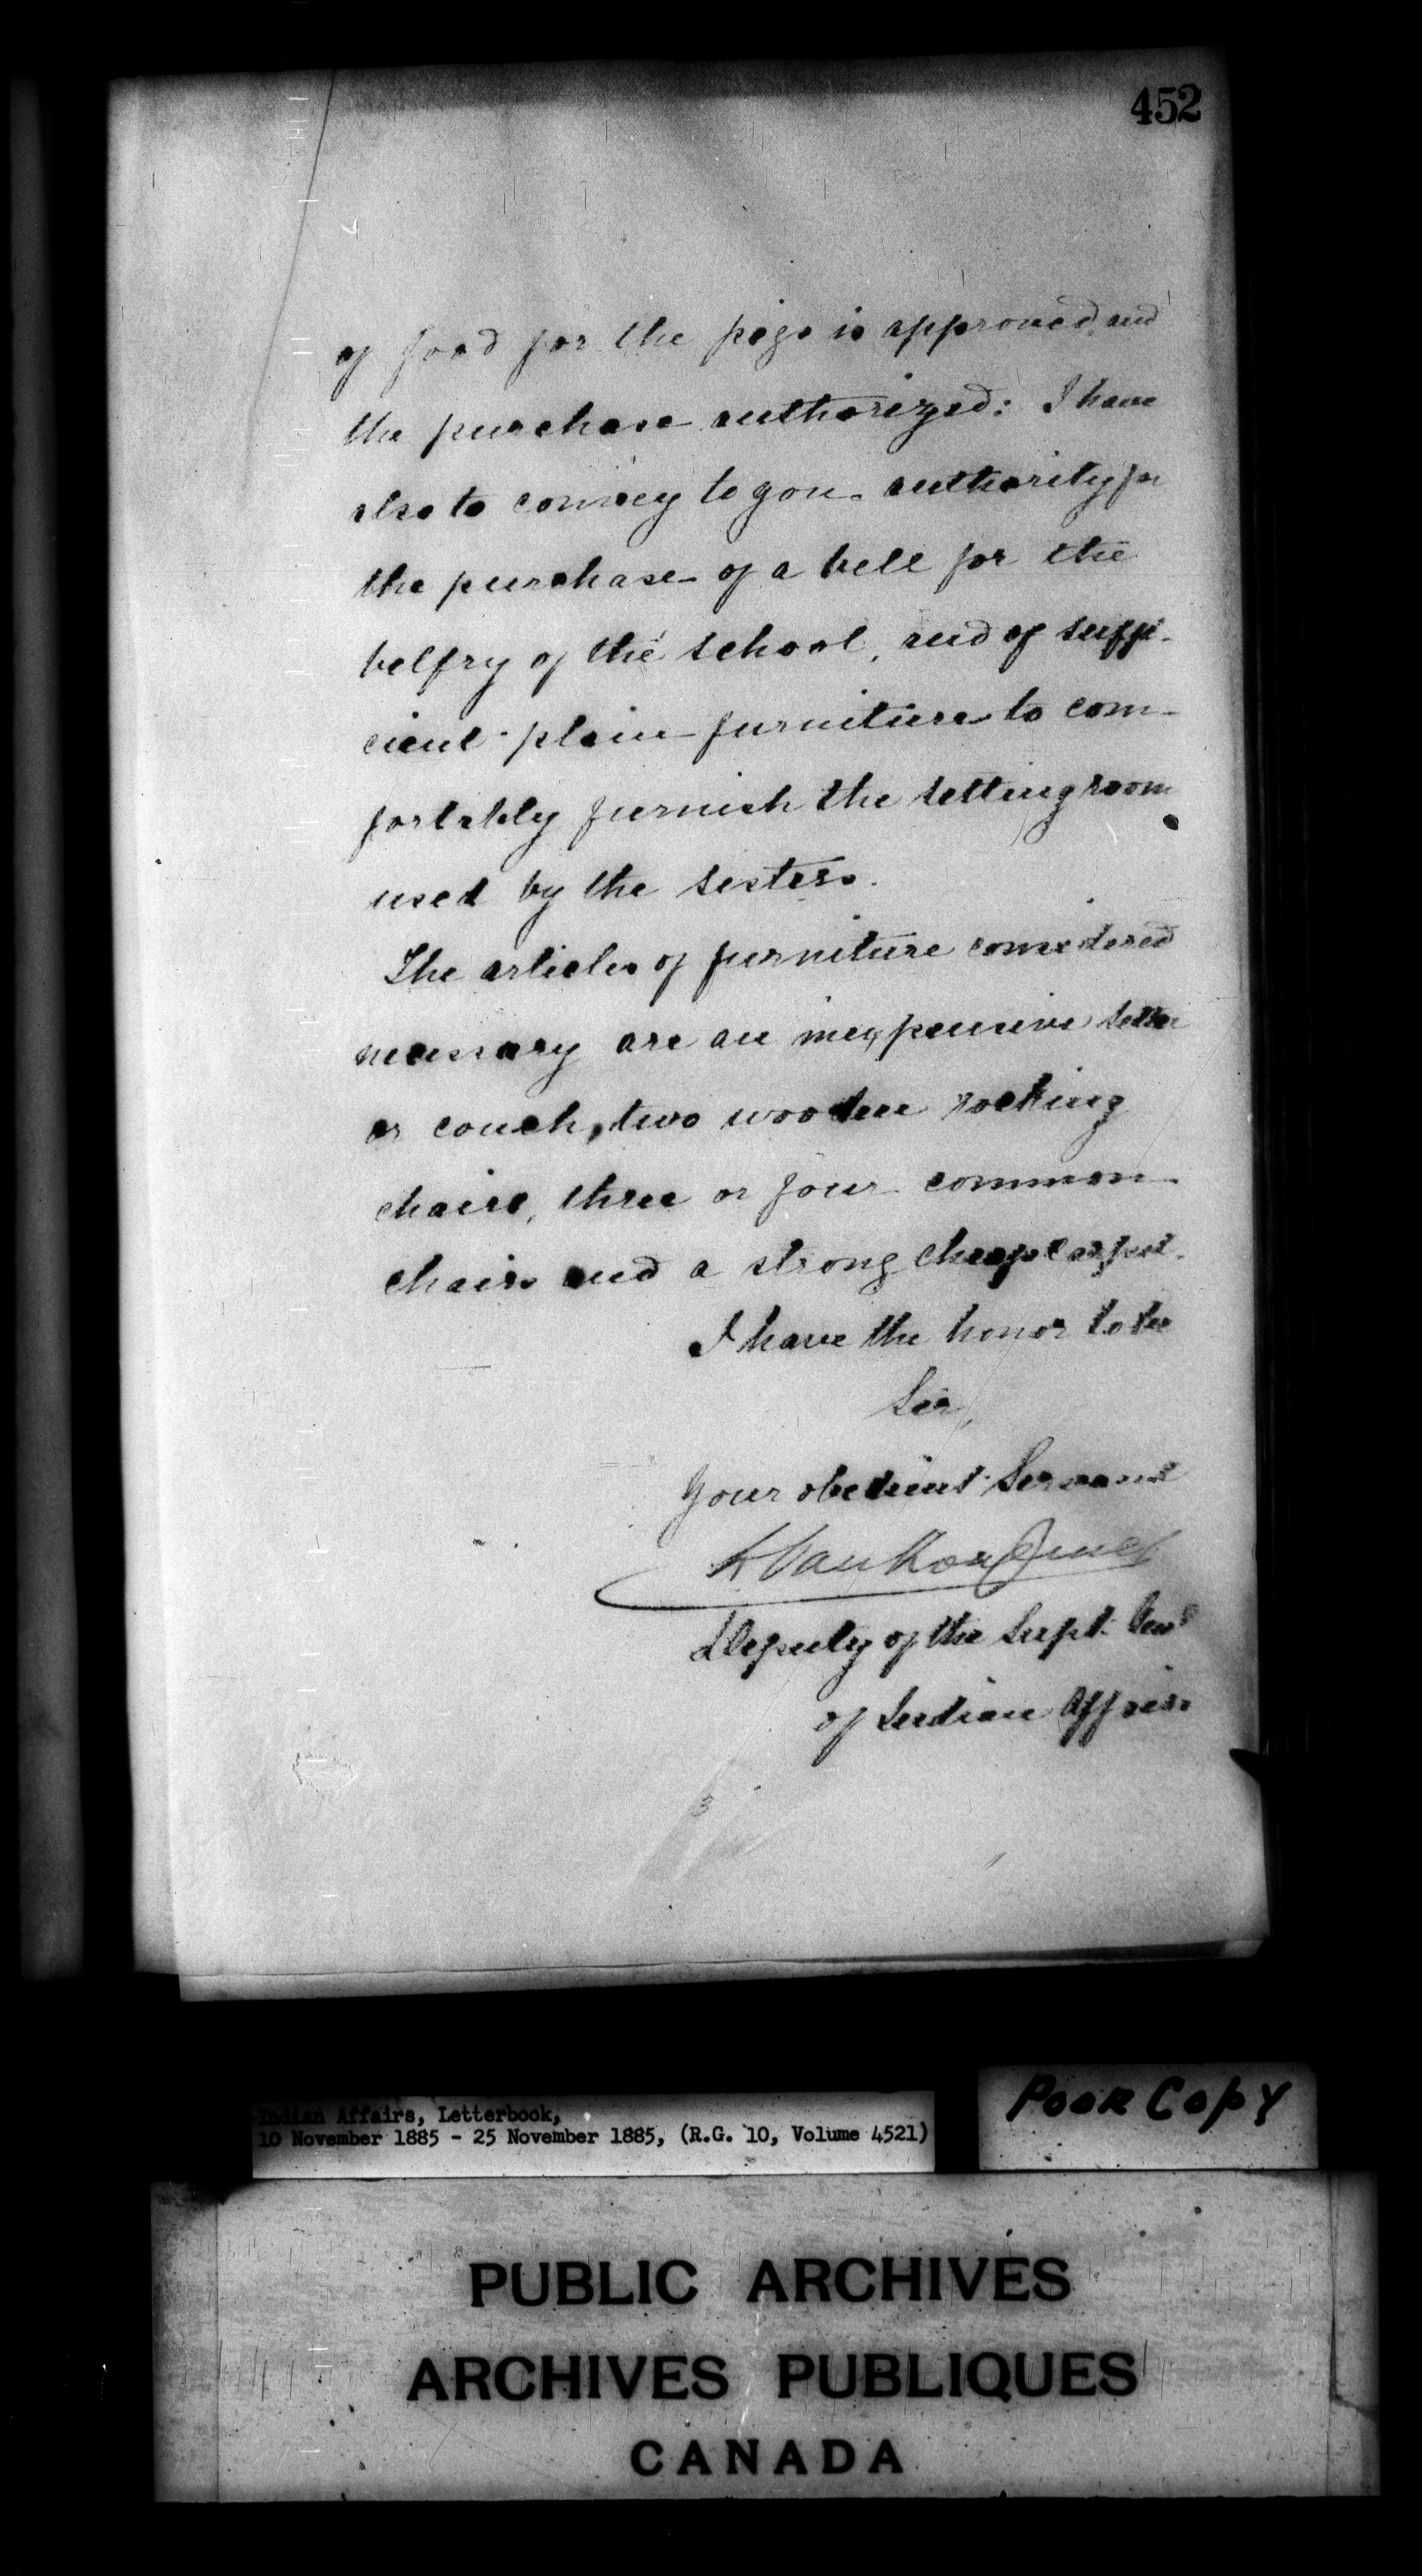 452
of food for the pigs is approved, and
the purchase authorized: I have
also to convey to you authority for
the purchase of a bell for the
belfry of the school, and of suffi-
cient plain furniture to com-
fortably furnish the setting room
used by the sisters.
The articles of furniture considered
necessary are an inexpensive settee
or couch, two wooden rocking
chairs, three or four common
chairs and a strong cheap carpet.
I have the honor to be
Sir,
Your obedient Servant
L VanKoughnet
Deputy of the Supt. Genl
of Indian Affairs
Poor Copy
Indian Affairs, Letterbook,
10 November 1885 - 25 November 1885, (R.G. 10, Volume 4521)
PUBLIC ARCHIVES
ARCHIVES PUBLIQUES
CANADA